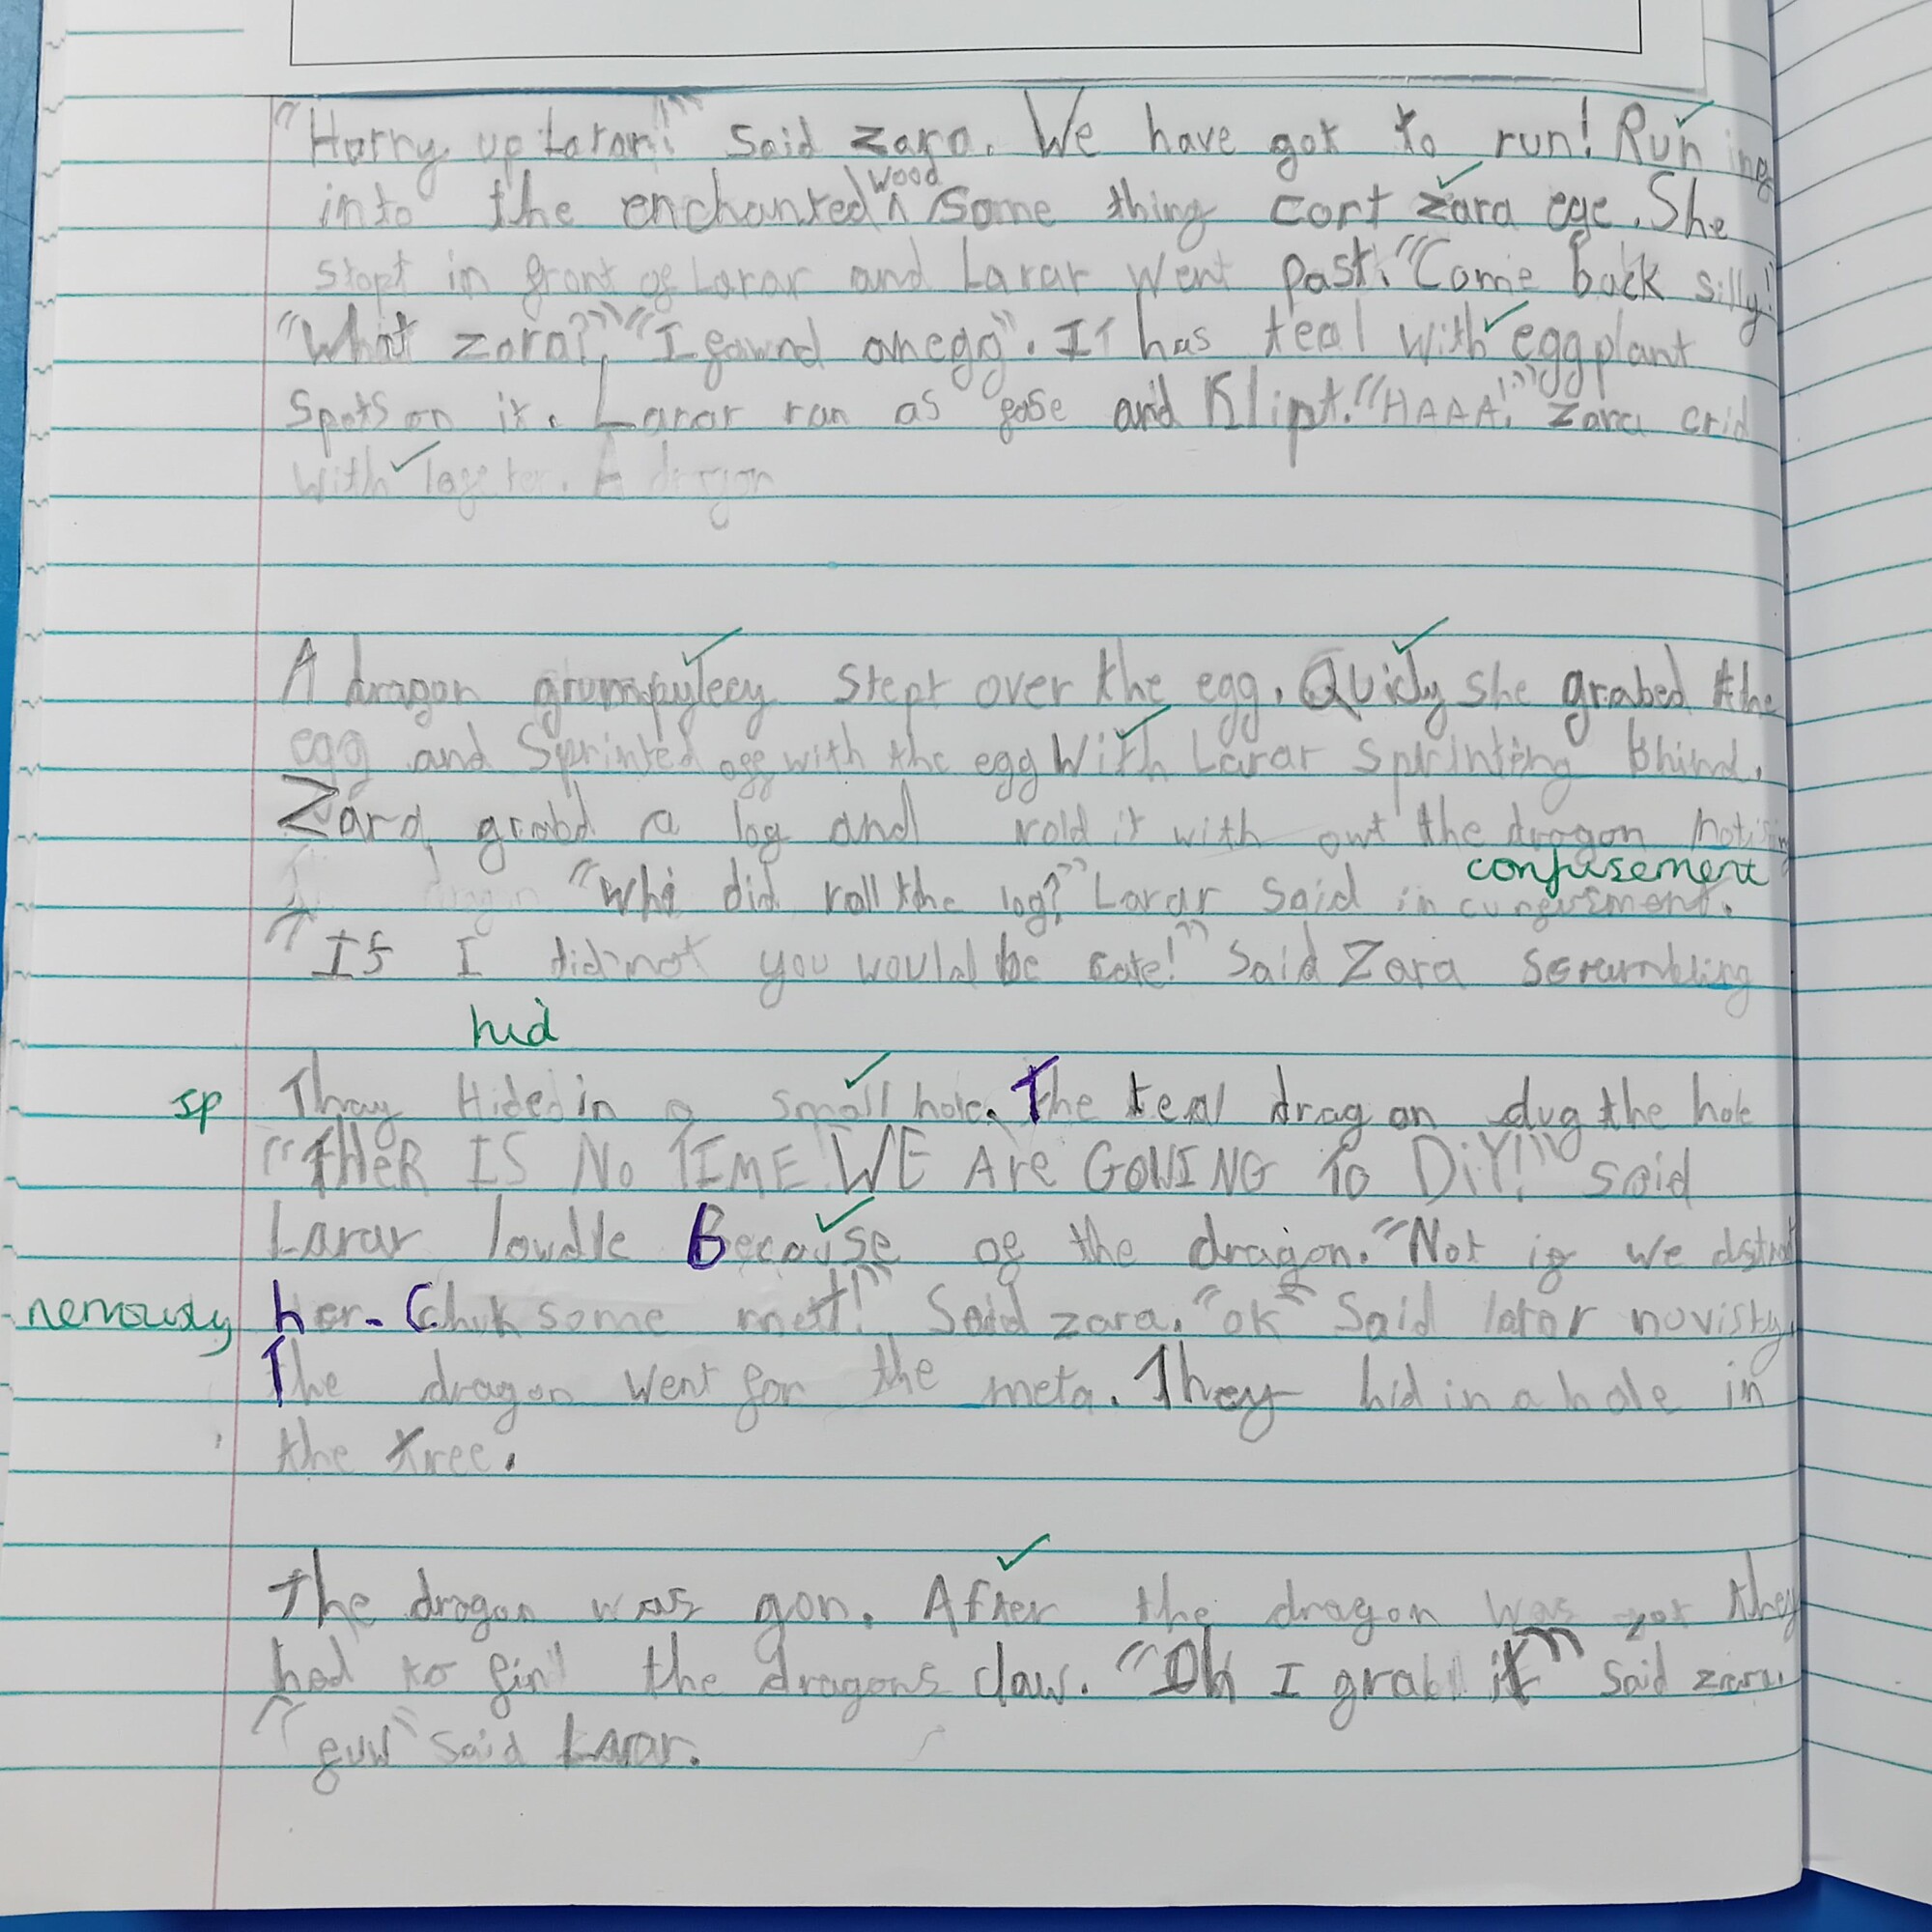 "Horry up Larar!" Said zara. We have got to run! Runing
into the enchanted wood some thing cort zara eye. She
stopt in front of Larar and Larar went past. "Come back silly!
"What zara?" "I fownd an egg". It has teal with eggplant
spots on it. Larar ran as fase and Klipt. "HAAA!" Zara crid
with lagfter. A dragon
A dragon grumpyleey stept over the egg. Quicly she grabed the
egg and Sprinted off with the egg With Larar sprinting bhind.
Zara grabd a log and rold it with out the dragon
"Whi did roll the log?" Larar said in
confusement
"If I did not you would be eate!" Said Zara scrambling
hid
sp Thay Hided in a small hole. The teal dragon dug the hole
"THER IS No TIME WE ARe GOWING To DiY!" said
Larar lowdle Because of the dragon. "Not if we
nervously her. Chuk some mett!" Said zara. "ok" Said larar novisty.
The dragon went for the meta. They hid in a hole in
the tree.
The dragon was gon. After the dragon was they
had to fin the dragons claw. "Oh I grab it" said zara.
"euw" said Larar.